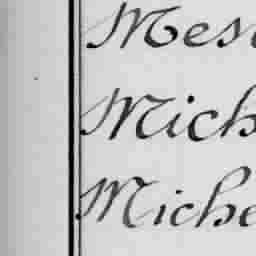 Mes
Mich
Miche